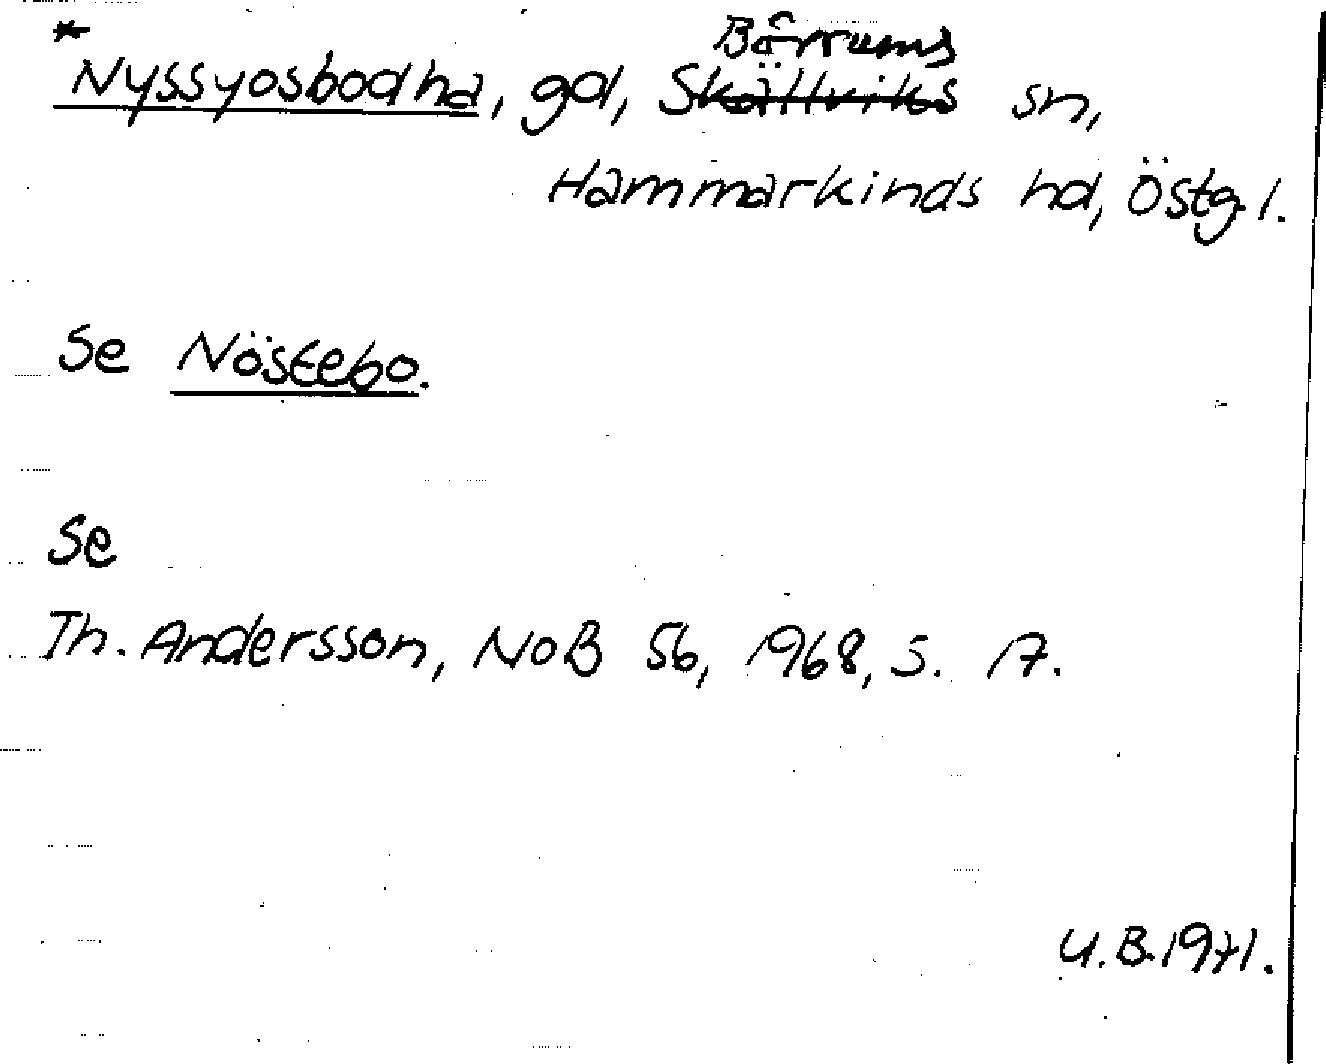 Börrums
*Nyssyosbodha, gd, Skällviks sn,
Hammarkinds hd, Östg.l.
Se Nöstebo.
Se
Th. Andersson, NoB 56, 1968, s. 17.
U.B.1971.